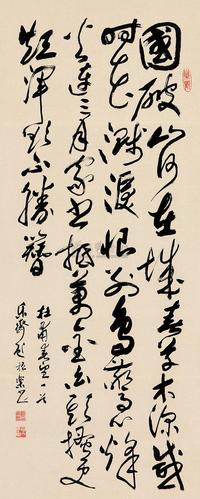 國破山河在城春草木深感
時花濺淚恨別鳥驚心烽
火連三月家書抵萬金白頭搔更
短渾欲不勝簪
杜甫春望一首